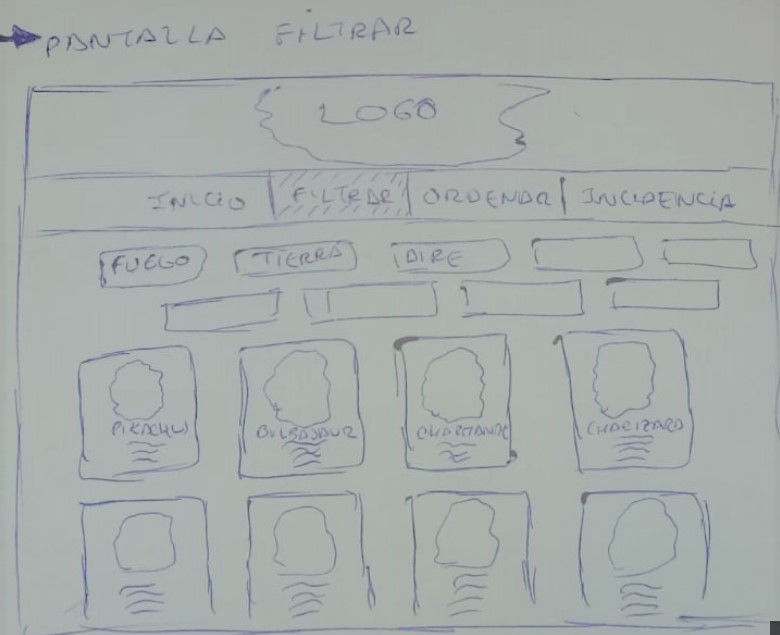 PANTALLA FILTRAR
LOGO
INICIO FILTRAR ORDENAR INCIDENCIA
FUEGO TIERRA AIRE
PIKACHU BULBASAUR CHARMANDE CHARIZARD